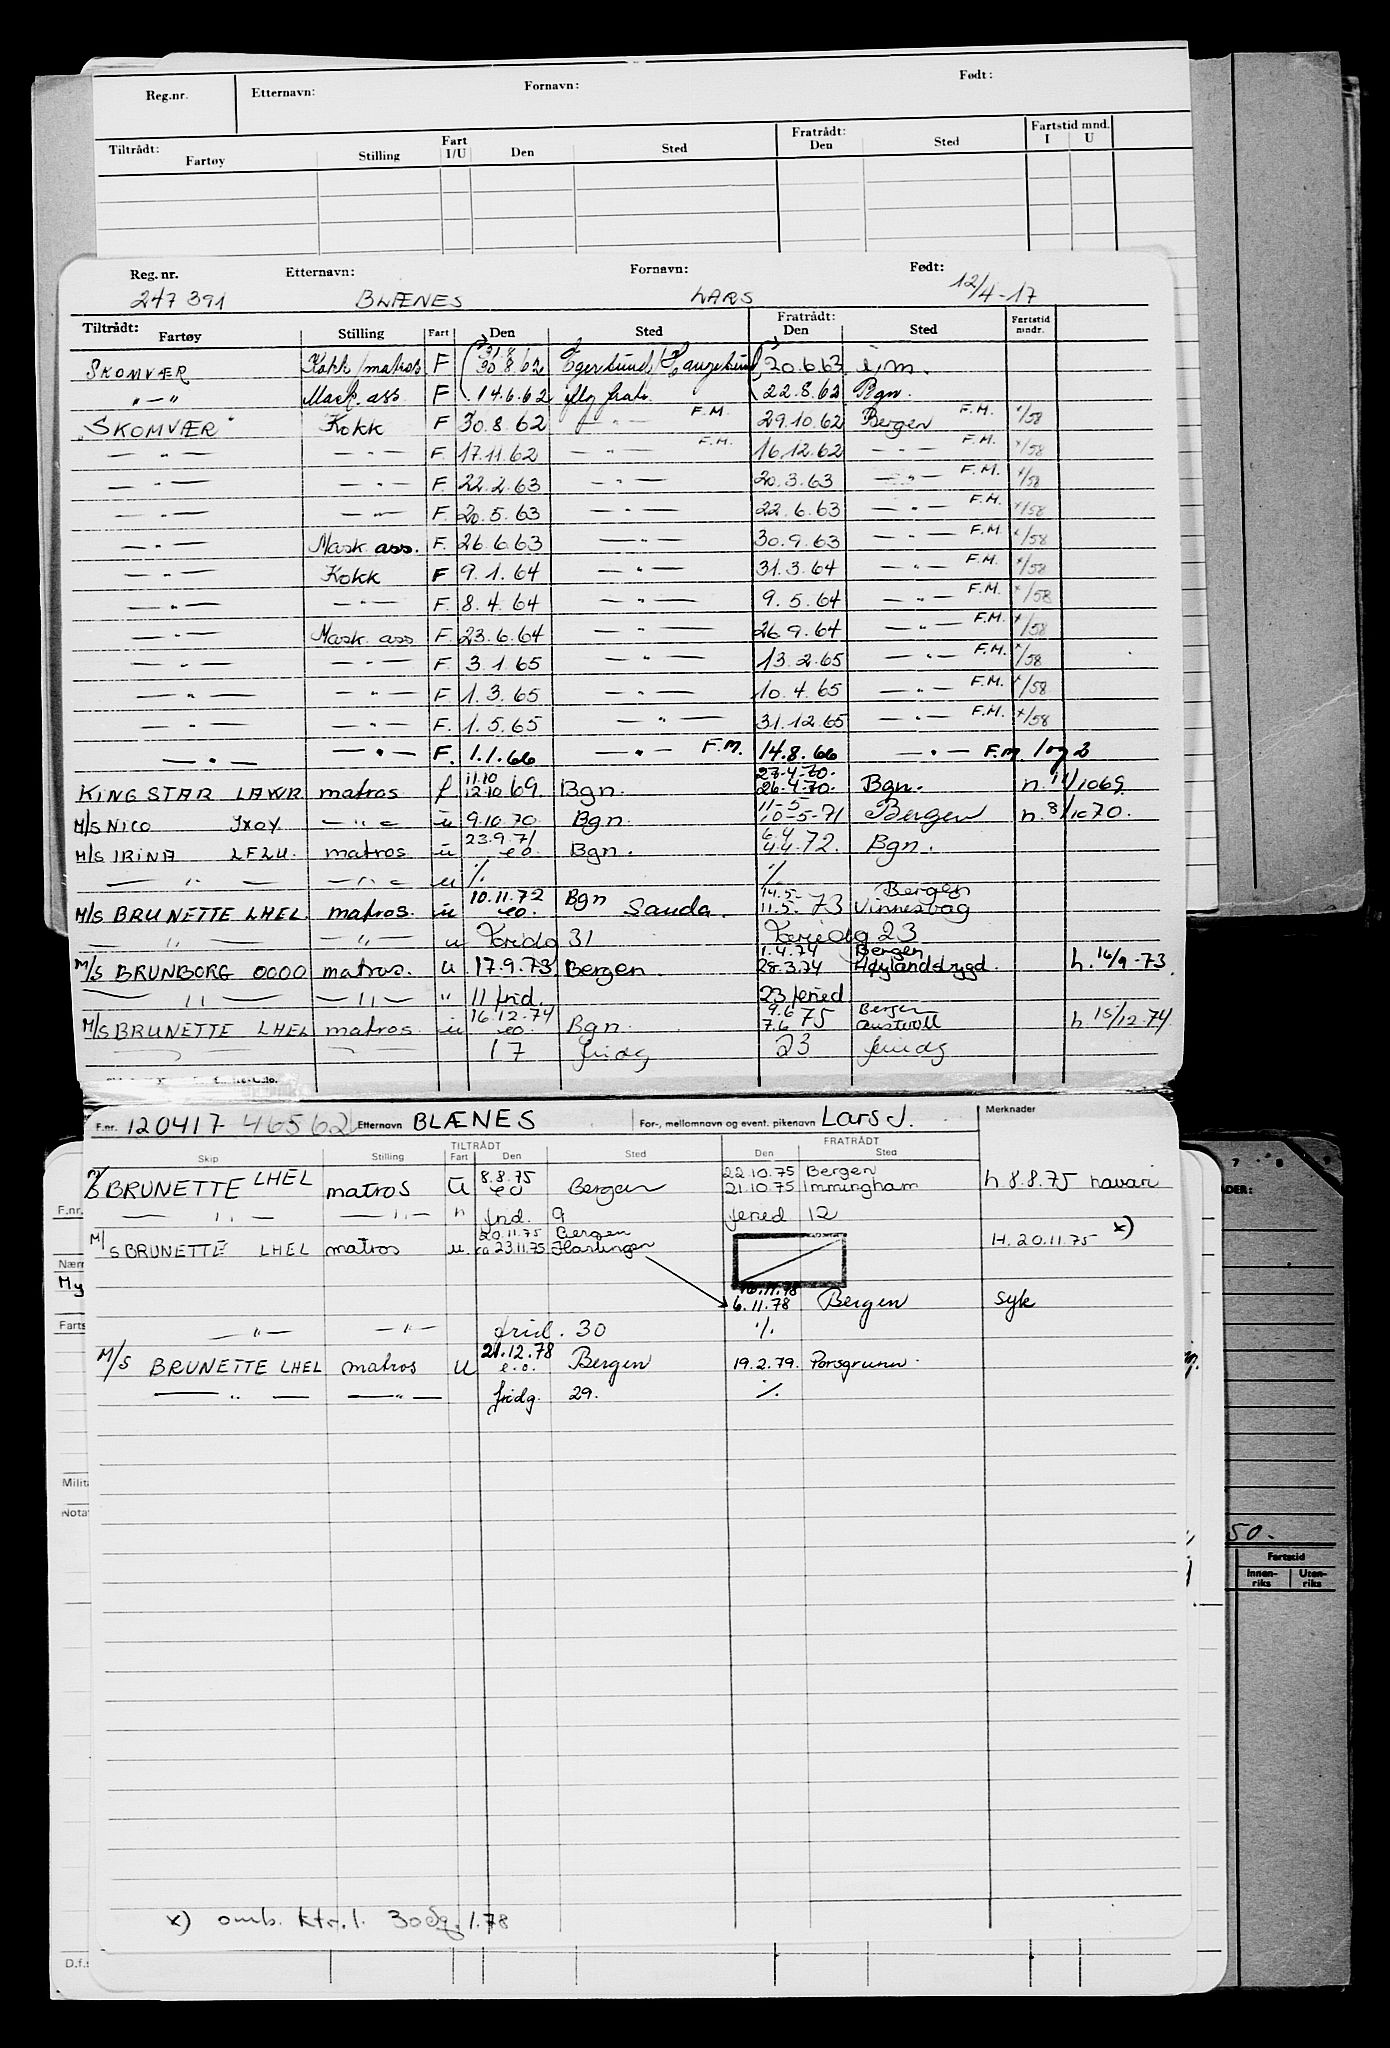 Reg.nr. Etternavn: Fornavn: Født:
Tiltrådt: Fartøy Stilling Fart I/U Den Sted Fratrådt: Den Sted Fartstid mnd. I U
Reg. nr. Etternavn: Fornavn: Født:
247 391 BLÆNES LARS 12/4-17
Tiltrådt: Fartøy Stilling Fart Den Sted Fratrådt: Den Sted Fartstid mndr.
SKOMVÆR Kokk/matros F 31.8 30.8.62 Egersund/Haugesund 20.6.63 i.m.
— " — Mask. ass. F 14.6.62 iflg fratr. 22.8.62 Bgn.
"SKOMVÆR" Kokk F 30.8.62 — " — F.M. 29.10.62 Bergen F.M. x/58
— " — — " — F. 17.11.62 — " — F.M. 16.12.62 — " — F.M. x/58
— " — — " — F. 22.2.63 — " — 20.3.63 — " — F.M. x/58
— " — — " — F. 20.5.63 — " — 22.6.63 — " — F.M. x/58
— " — Mask ass. F. 26.6.63 — " — 30.9.63 — " — F.M. x/58
— " — Kokk F 9.1.64 — " — 31.3.64 — " — F.M. x/58
— " — — " — F. 8.4.64 — " — 9.5.64 — " — F.M. x/58
— " — Mask. ass F. 23.6.64 — " — 26.9.64 — " — F.M. x/58
— " — — " — F. 3.1.65 — " — 13.2.65 — " — F.M. x/58
— " — — " — F. 1.3.65 — " — 10.4.65 — " — F.M. x/58
— " — — " — F. 1.5.65 — " — 31.12.65 — " — F.M. x/58
— " — — " — F. 1.1.66 — " — F.M. 14.8.66 — " — F.M. 1 og 2
KING STAR LAWR matros f 11.10 12.10 69 Bgn. 27-4-70. 26-4-70. Bgn. n. 11/1069
M/S NICO JXOY — " — u 9.10.70 Bgn. 11-5 10-5-71 Bergen h. 8/1070.
M/S IRINA LFLU. matros u 23.9.71 eo. Bgn. 6.4 4.4.72. Bgn.
— " — — " — u % %
M/S BRUNETTE LHEL. matros. u 10.11.72 eo. Bgn Sauda. 14.5- 11.5- 73 Bergen Vinnesvåg
— " — — " — u Fridg 31 Feriedg 23
M/S BRUNBORG OOOO matros. u 17.9.73 Bergen. 1.4.74 28.3.74 Bergen Høylandsbygd. h. 16/9-73.
— " — — " — " 11 frid. 23 feried
M/S BRUNETTE LHEL matros u 16.12.74 eo. Bgn. 9.6 7.6 75 Bergen Austevoll h. 15/12-74
17 fridg 23 feridg
F.nr. 120417-46562 Etternavn BLÆNES For-, mellomnavn og event. pikenavn Lars J. Merknader
TILTRÅDT FRATRÅDT
Skip Stilling Fart Den Sted Den Sted
M/S BRUNETTE LHEL matros U 8.8.75 eo Bergen 22.10.75 Bergen 21.10.75 Immingham h 8.8.75 havari
— " — — " — " frid. 9 feried 12
M/S BRUNETTE LHEL matros u 20.11.75 Bergen ca 23.11.75 Harlingen H. 20.11.75 x)
16.11.78
6.11.78 Bergen syk
— " — — " — frid. 30 %
M/S BRUNETTE LHEL matros U 21.12.78 e.o. Bergen 19.2.79. Porsgrunn.
— " — — " — fridg. 29. %
x) omb. ktr.l. 30dg. 1.78
F.nr.
My
Farts
Notat
D.f.
50.
Fartstid
Innen-riks Uten-riks